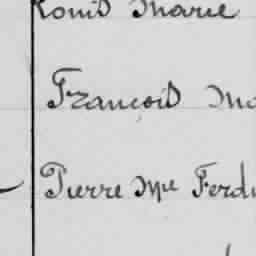 Louis Marie
François Ma
Pierre Mie Ferdi